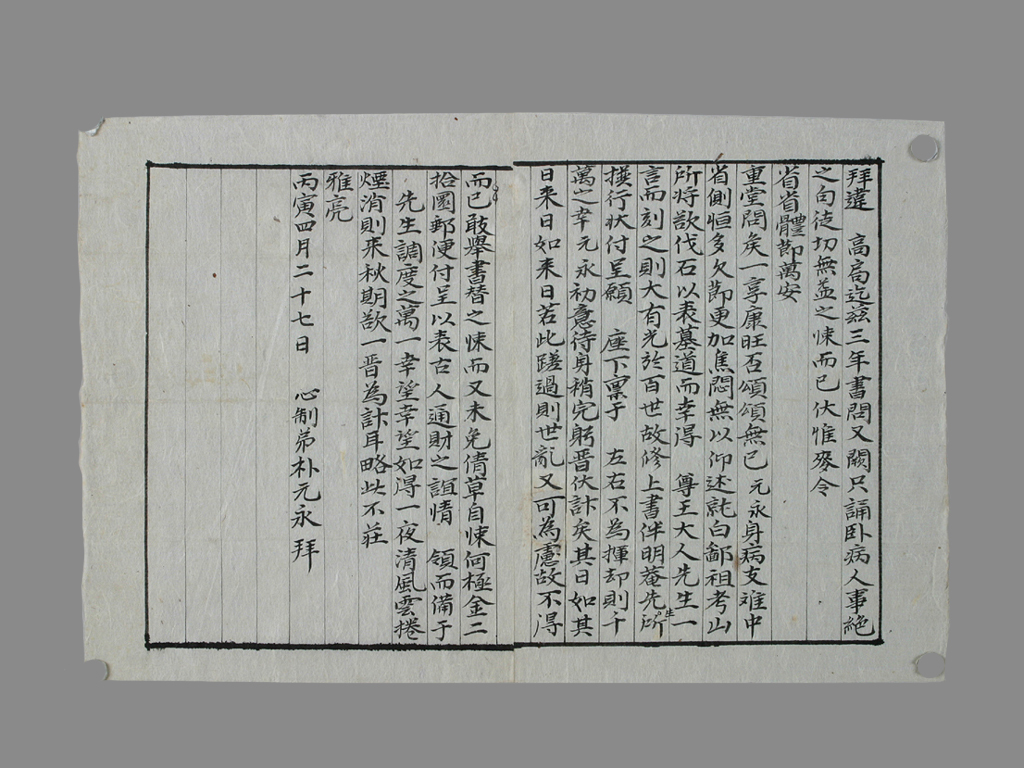 拜違 高扃迄玆三年書問又闕只誦臥病人事絶
之句徒切無益之悚而已伏惟麥令
省省體節萬安
重堂問矣一享康旺否頌頌無已元永身病支难中
省側恒多欠節更加焦悶無以仰述耗白鄙祖考山
所将欲伐石以表墓道而幸得 尊王大人先生一
言而刻之則大有光於百世故修上書伴明菴先生所
撰行状付呈願 座下禀于 左右不為揮却則千
萬之幸元永初意待身稍完躬晋伏計矣其日如其
日来日如来日若此蹉過則世亂又可為慮故不得
而已敢舉書替之悚而又未免倩草自悚何極金二
拾圓郵便付呈以表古人通財之誼情 領而備于
先生調度之萬一幸望幸望如得一夜清風雲捲
煙消則来秋期欲一晋為計耳略此不莊
雅亮
丙寅四月二十七日 心制弟朴元永拜